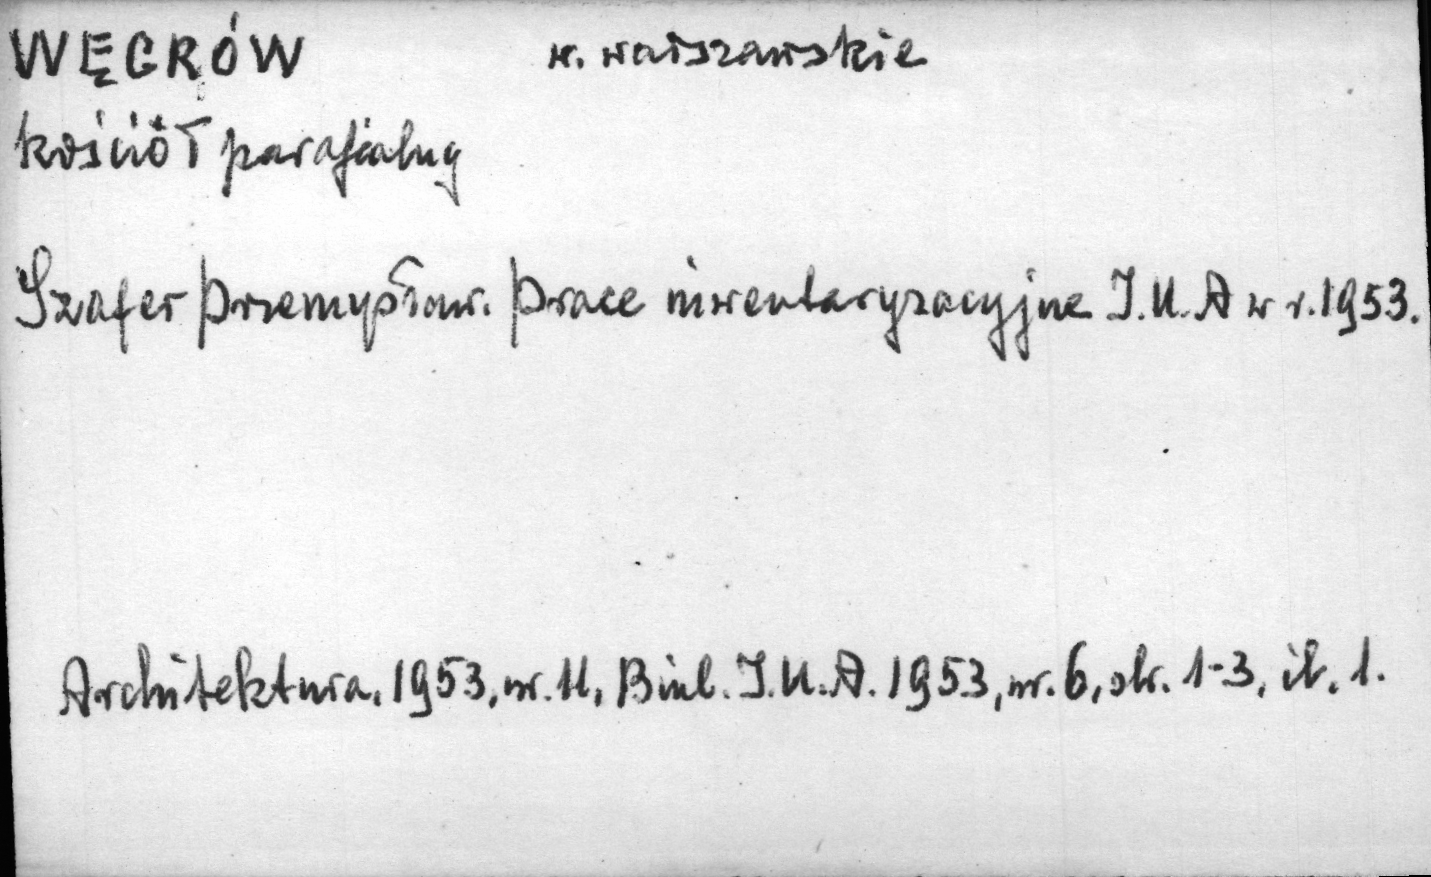 WĘGRÓW w. warszawskie
kościół parafialny
Szafer Przemysław. Prace inwentaryzacyjne I.U.A w r. 1953.
Architektura. 1953, nr. 11, Biul. I.U.A. 1953, nr. 6, str. 1-3, il. 1.